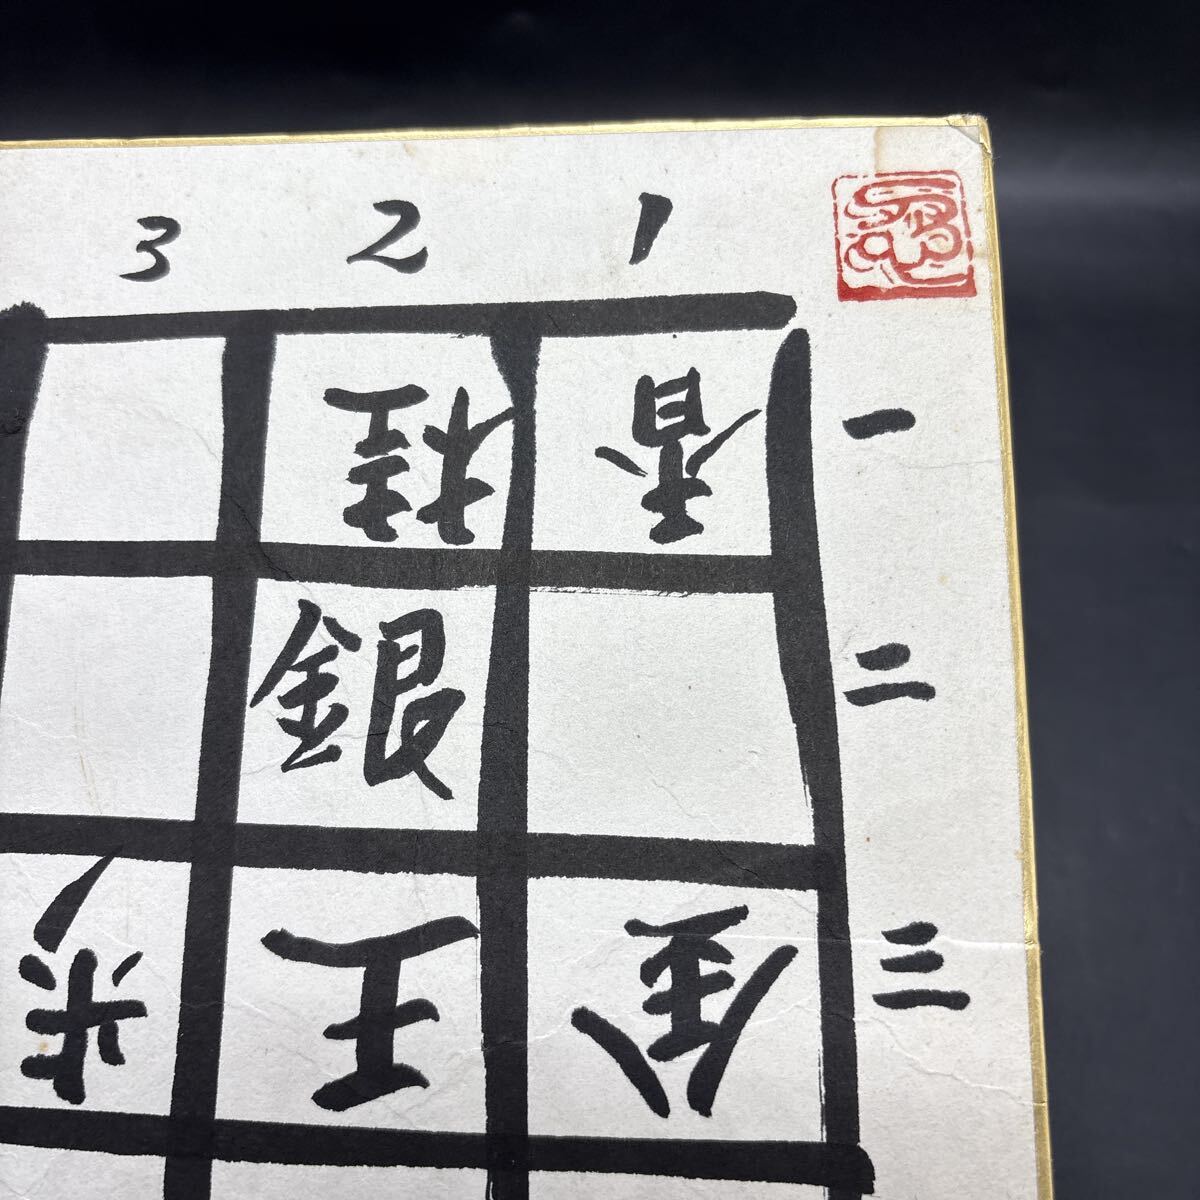 3 2 1
桂 香 一
銀 二
歩 王 金 三